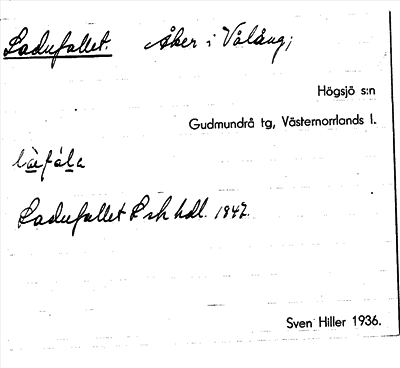 Ladufallet. Åker i Vålång;
Högsjö s:n
Gudmundrå tg, Västernorrlands l.
Ladufallet L sk hdl. 1842.
Sven Hiller 1936.